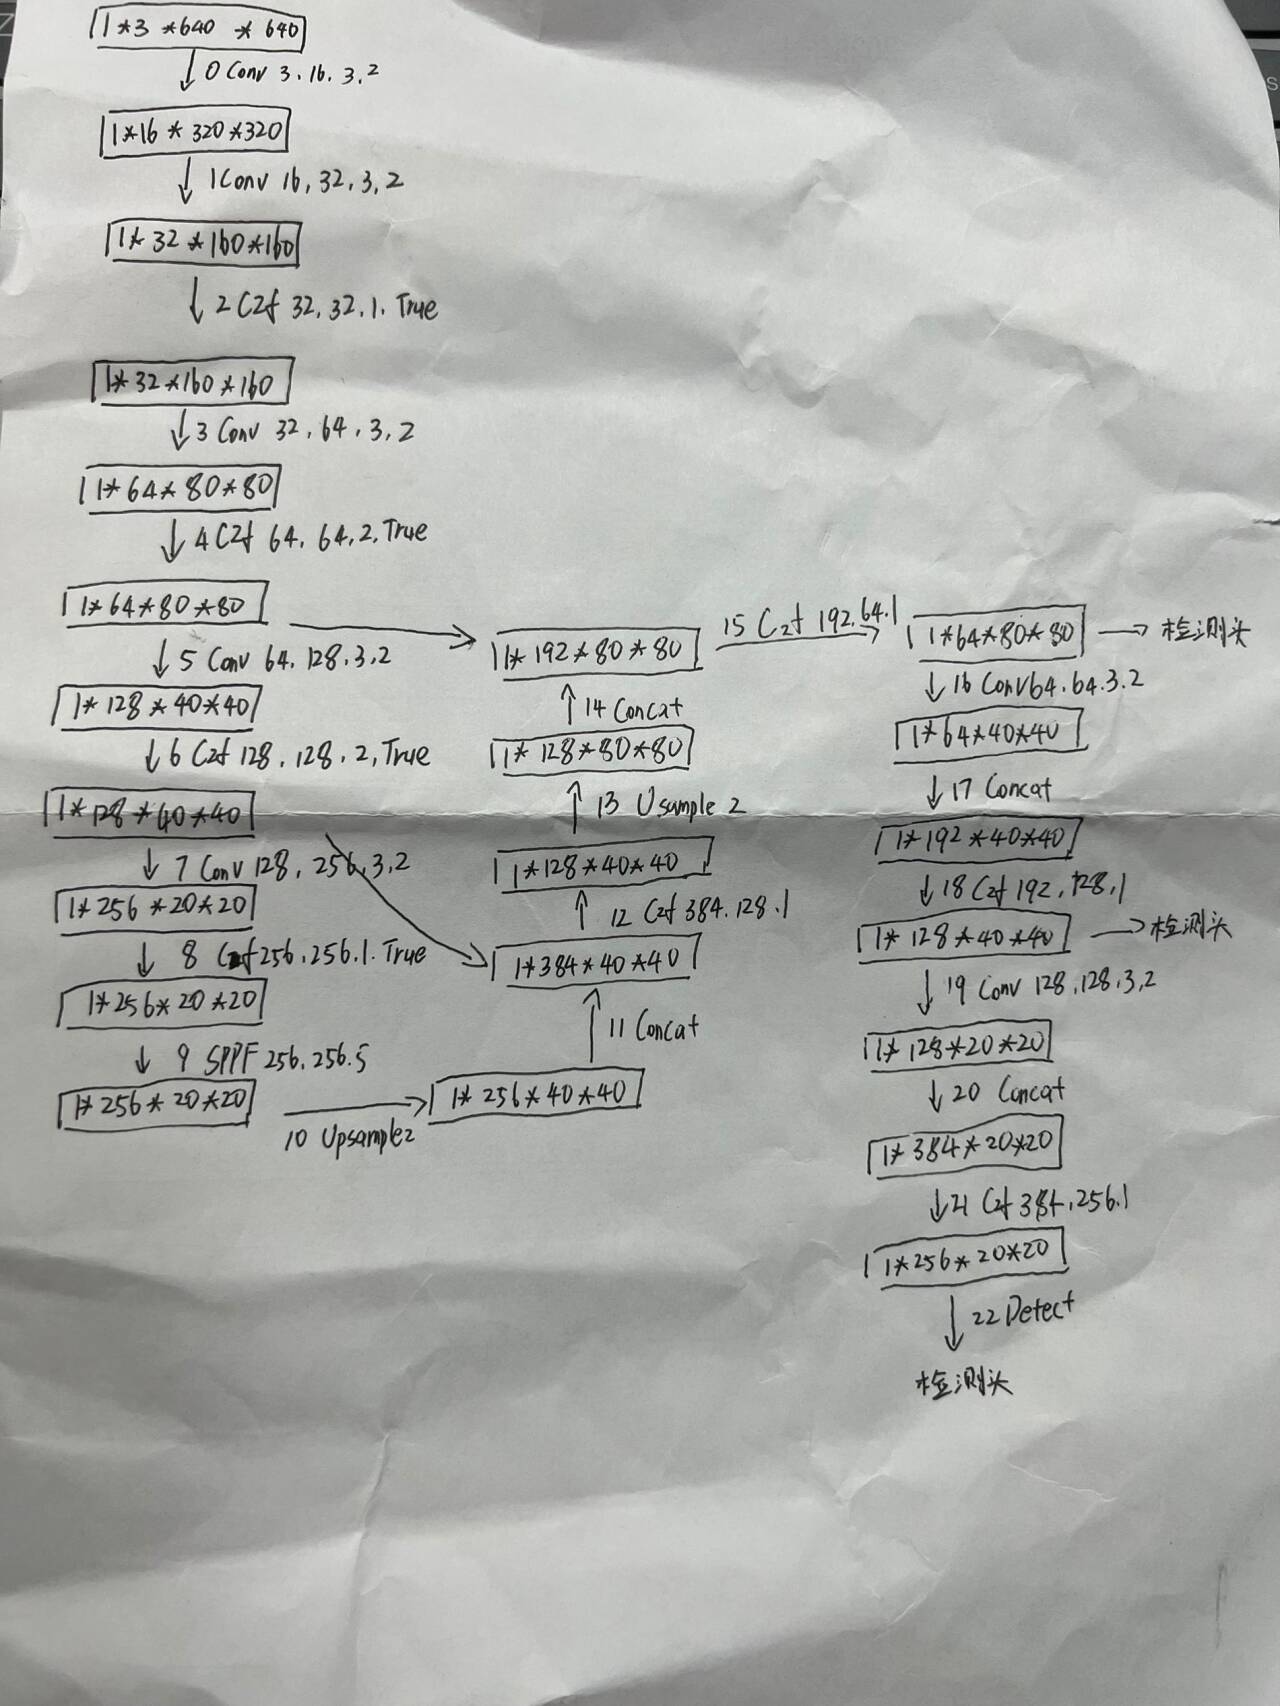 1*3*640*640
0 Conv 3.16.3.2
1*16*320*320
1Conv 16,32,3,2
1*32*160*160
2 C2f 32.32.1.True
1*32*160*160
3 Conv 32.64.3.2
1*64*80*80
4 C2f 64.64.2.True
1*64*80*80
5 Conv 64.128.3.2
1*128*40*40
6 C2f 128.128.2,True
1*128*40*40
7 Conv 128,256,3,2
1*256*20*20
8 C2f 256.256.1.True
1*256*20*20
9 SPPF 256.256.5
1*256*20*20
10 Upsample2
1*256*40*40
11 Concat
1*384*40*40
12 C2f 384.128.1
1*128*40*40
13 Usample 2
1*128*80*80
14 Concat
1*192*80*80
15 C2f 192.64.1
1*64*80*80
检测头
16 Conv64.64.3.2
1*64*40*40
17 Concat
1*192*40*40
18 C2f 192.128.1
1*128*40*40
检测头
19 Conv 128.128.3,2
1*128*20*20
20 Concat
1*384*20*20
21 C2f 384.256.1
1*256*20*20
22 Detect
检测头